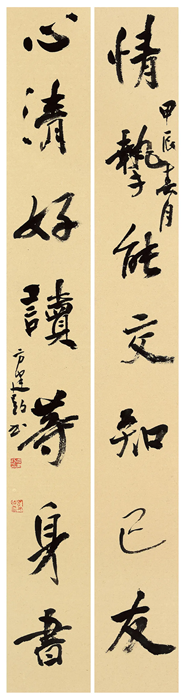 甲辰春月
情摯能交知己友
心清好讀等身書
方建勛书